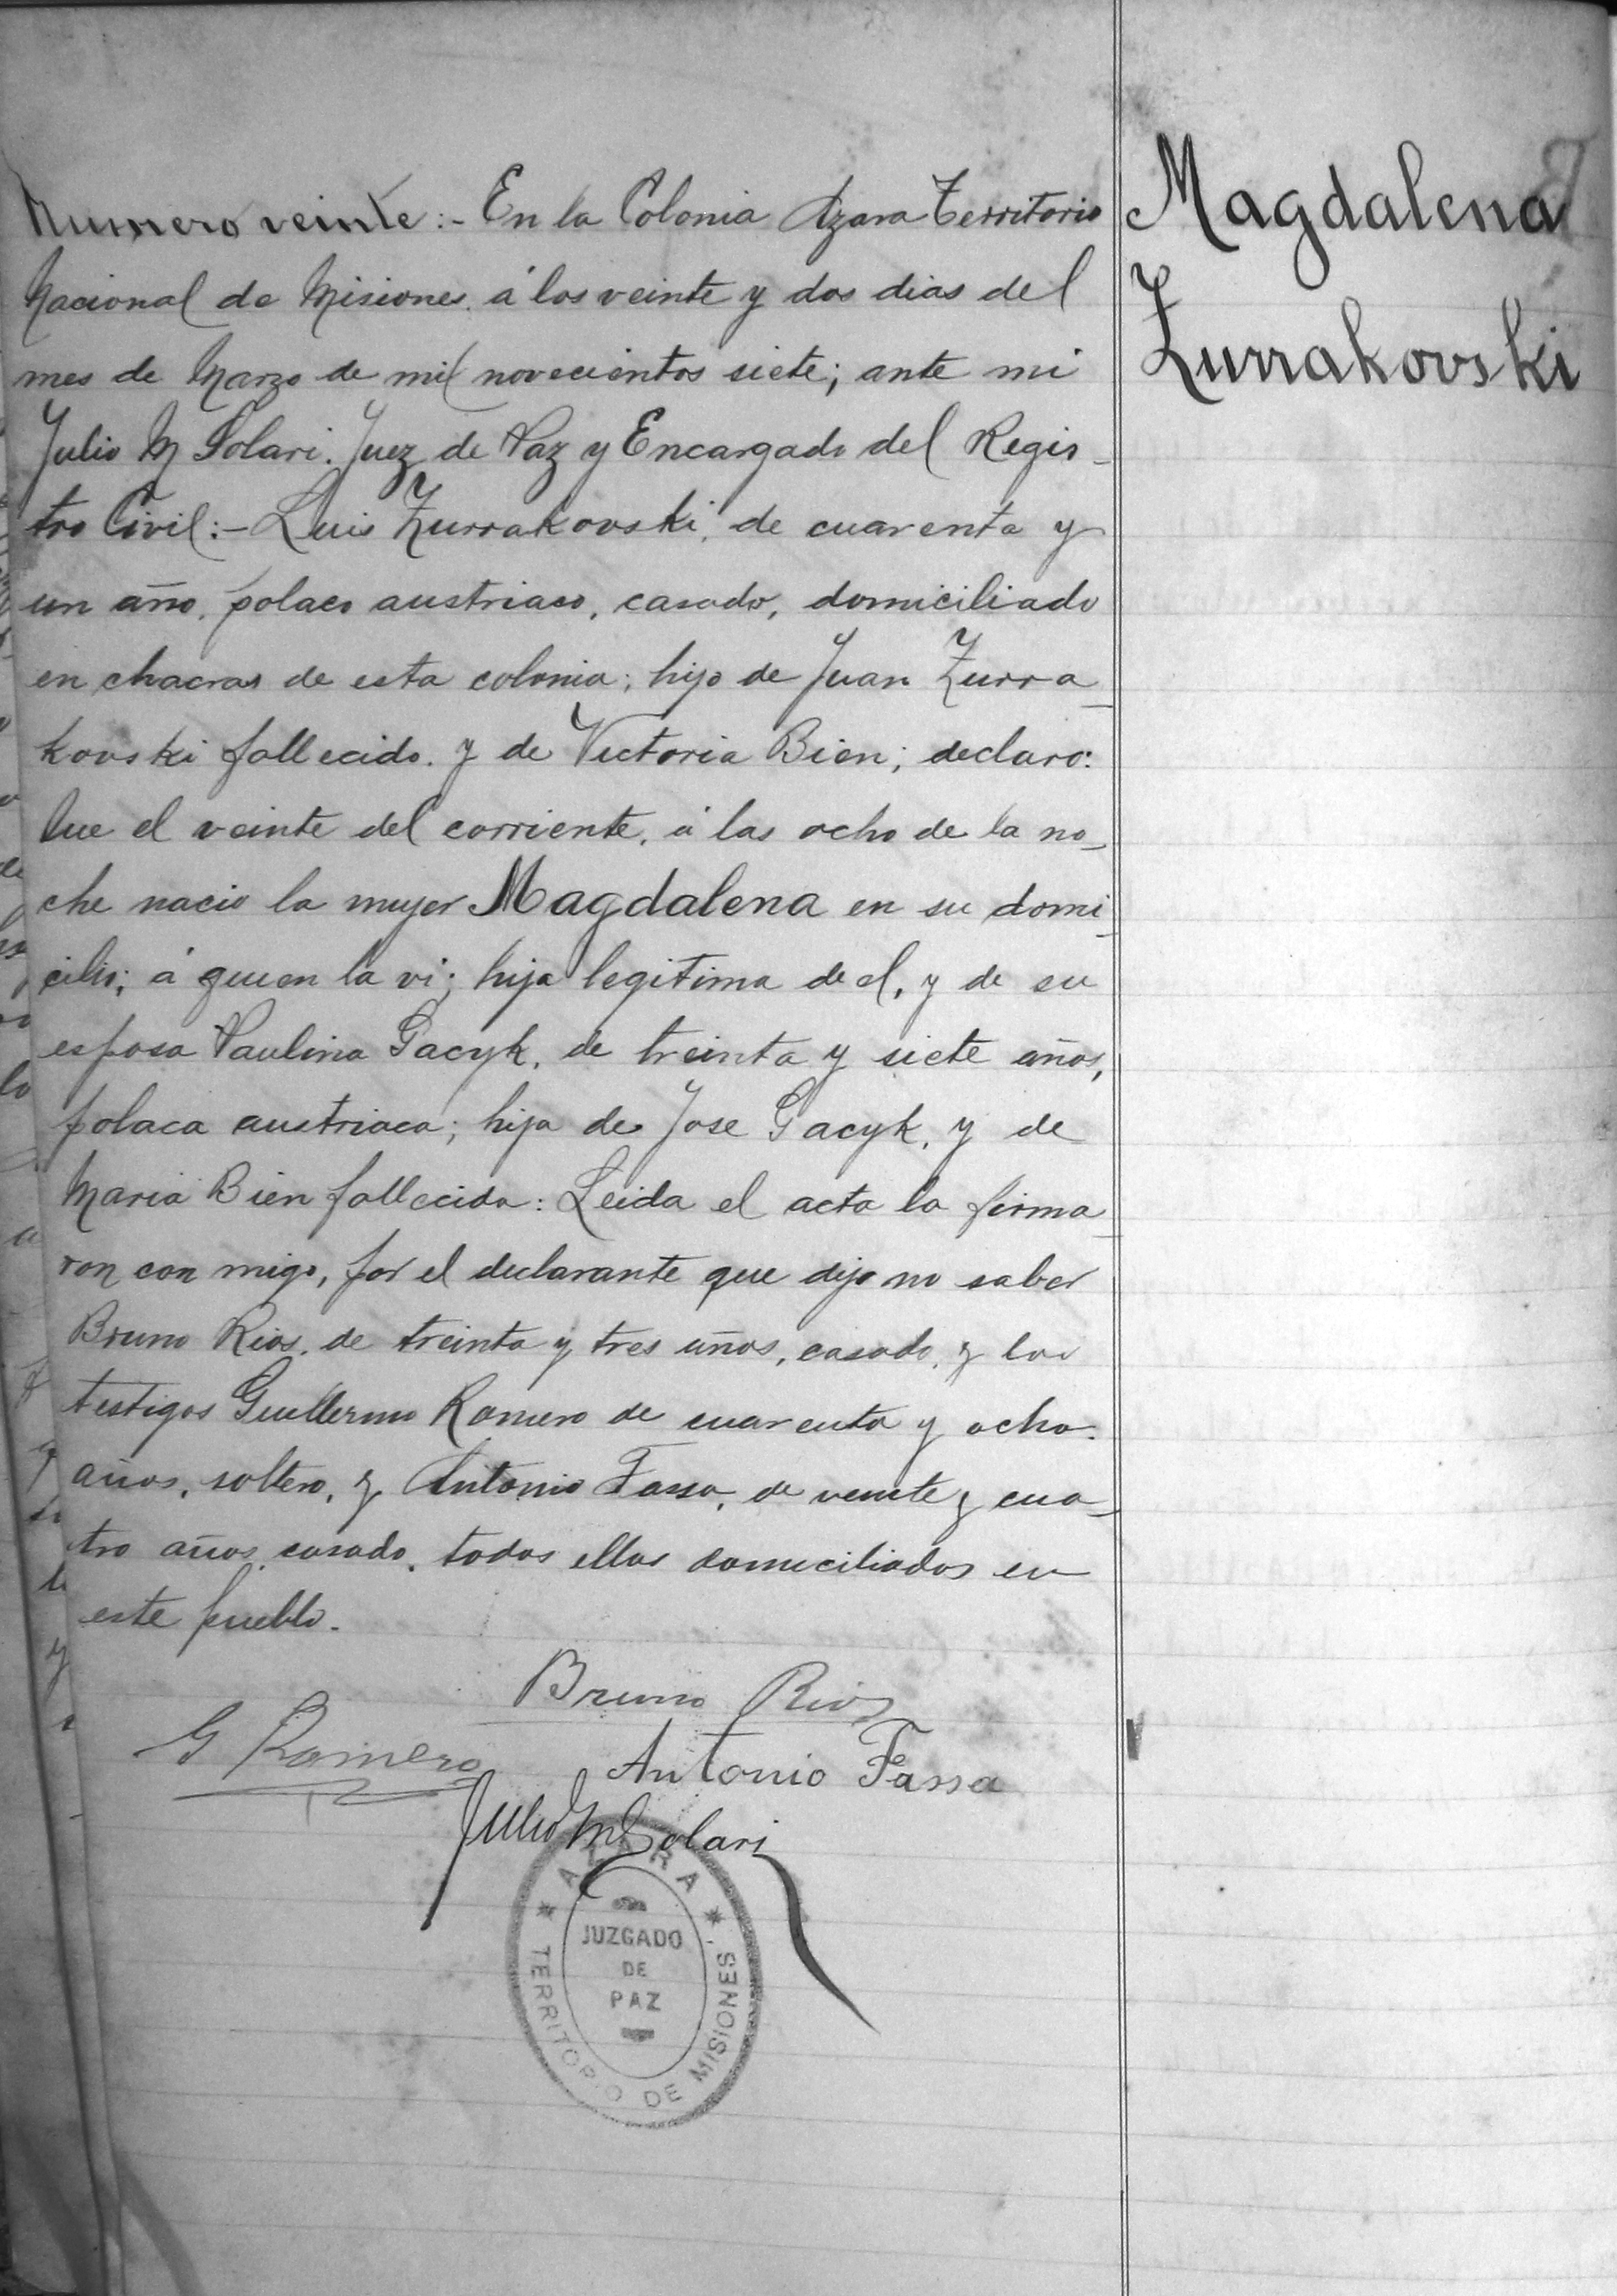 Magdalena
Zurrakovski
Numero veinte:- En la Colonia Azara Territorio
Nacional de Misiones, á los veinte y dos dias del
mes de Marzo de mil novecientos siete; ante mi
Julio M Solari. Juez de Paz y Encargado del Regis-
tro Civil:- Luis Zurrakovski, de cuarenta y
un año, polaco austriaco, casado, domiciliado
en chacras de esta colonia; hijo de Juan Zurra-
kovski fallecido. y de Victoria Bien; declaro:
Que el veinte del corriente, á las ocho de la no-
che nacio la mujer Magdalena en su domi-
cilio; á quien la vi; hija legitima de el, y de su
esposa Paulina Gacyk, de treinta y siete años,
polaca austriaca; hija de Jose Gacyk, y de
Maria Bien fallecida: Leida el acta la firma-
ron con migo, por el declarante que dijo no saber
Bruno Rios, de treinta y tres años, casado, y los
testigos Guillermo Romero de cuarenta y ocho
años, soltero, y Antonio Fassa, de veinte y cua-
tro años, casado, todos ellos domiciliados en
este pueblo.
Bruno Rios
G Romero
Antonio Fassa
Julio M Solari
AZARA
JUZGADO
DE
PAZ
TERRITORIO DE MISIONES